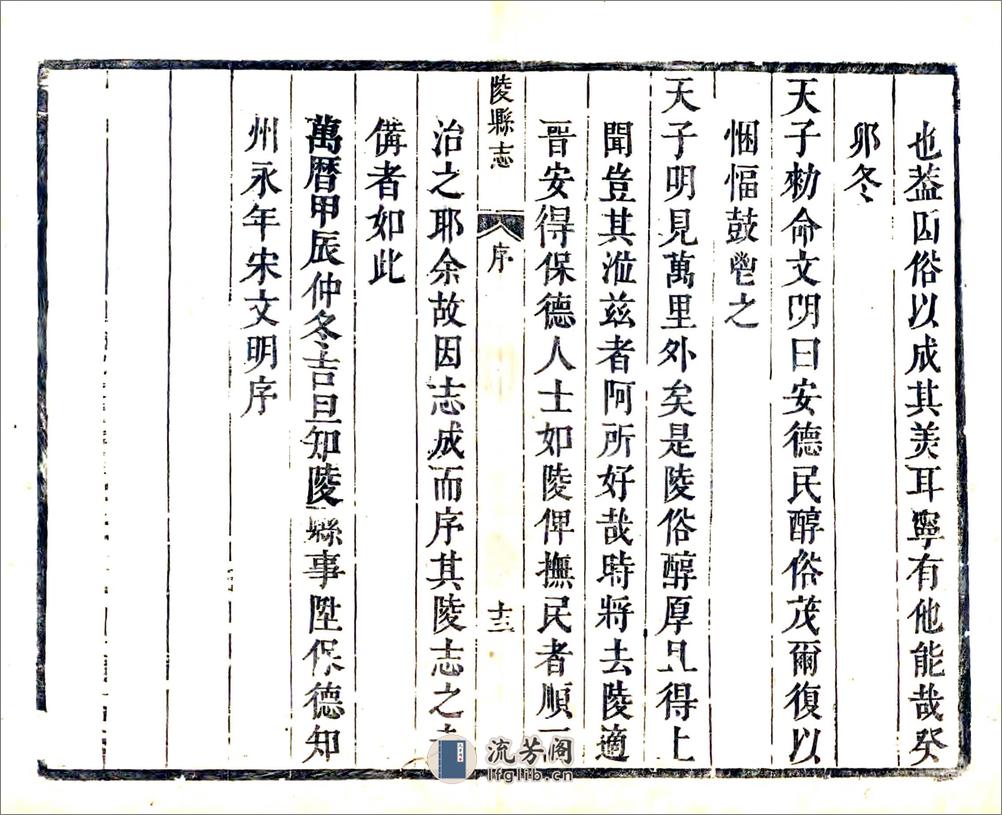 也葢因俗以成其美耳寧有他能哉癸
卯冬
天子勑命文明曰安德民醇俗茂爾復以
悃愊鼓鬯之
天子明見萬里外矣是陵俗醇厚且得上
聞豈其涖玆者阿所好哉時將去陵適
晉安得保德人士如陵俾撫民者順而
陵縣志
序
十三
治之耶余故因志成而序其陵志之未
備者如此
萬曆甲辰仲冬吉旦知陵縣事陞保德知
州永年宋文明序
流芳阁
lfglib.cn